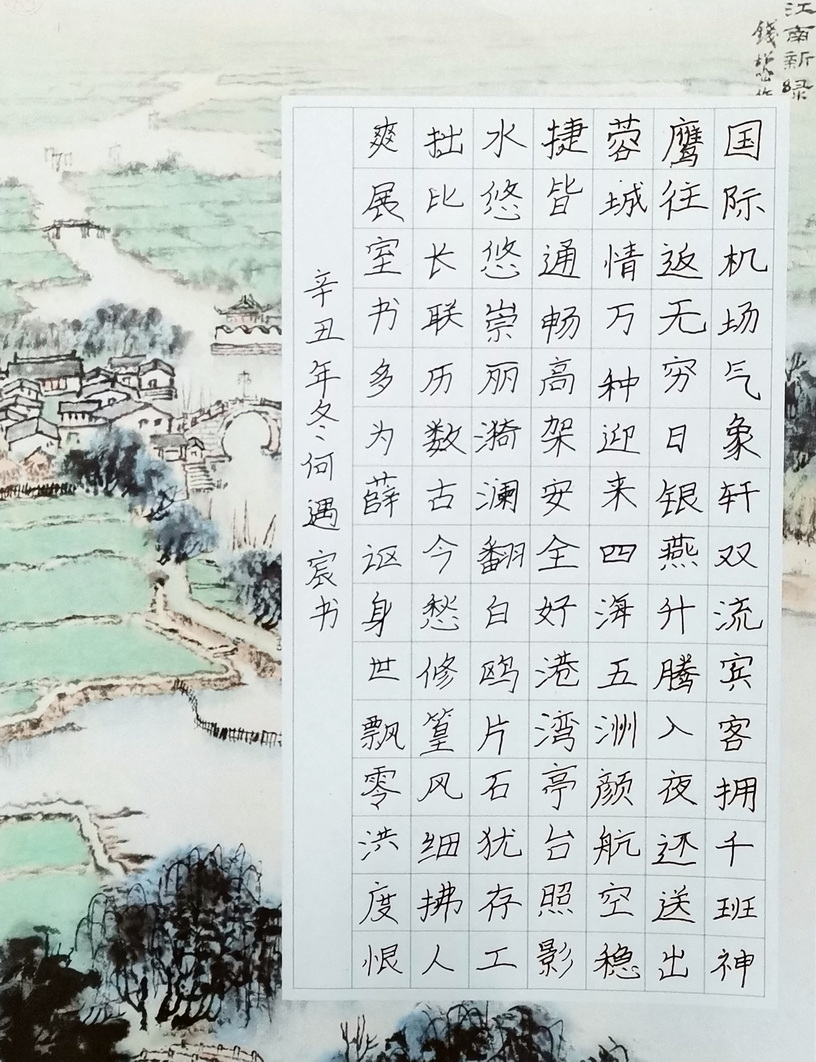 江南新绿
国际机场气象轩双流宾客拥千班神
鹰往返无穷日银燕升腾入夜还送出
蓉城情万种迎来四海五洲颜航空稳
捷皆通畅高架安全好港湾亭台照影
水悠悠崇丽漪澜翻白鸥片石犹存工
拙比长联历数古今愁修篁风细拂人
爽展室书多为薛讴身世飘零洪度恨
辛丑年冬何遇宸书